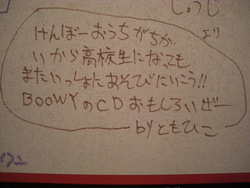 しょうじ
より
けんぼーおうちがちか
いから高校生になっても
またいっしょにあそびにいこう!!
BOOWYのCDおもしろいぜー
byともひこ